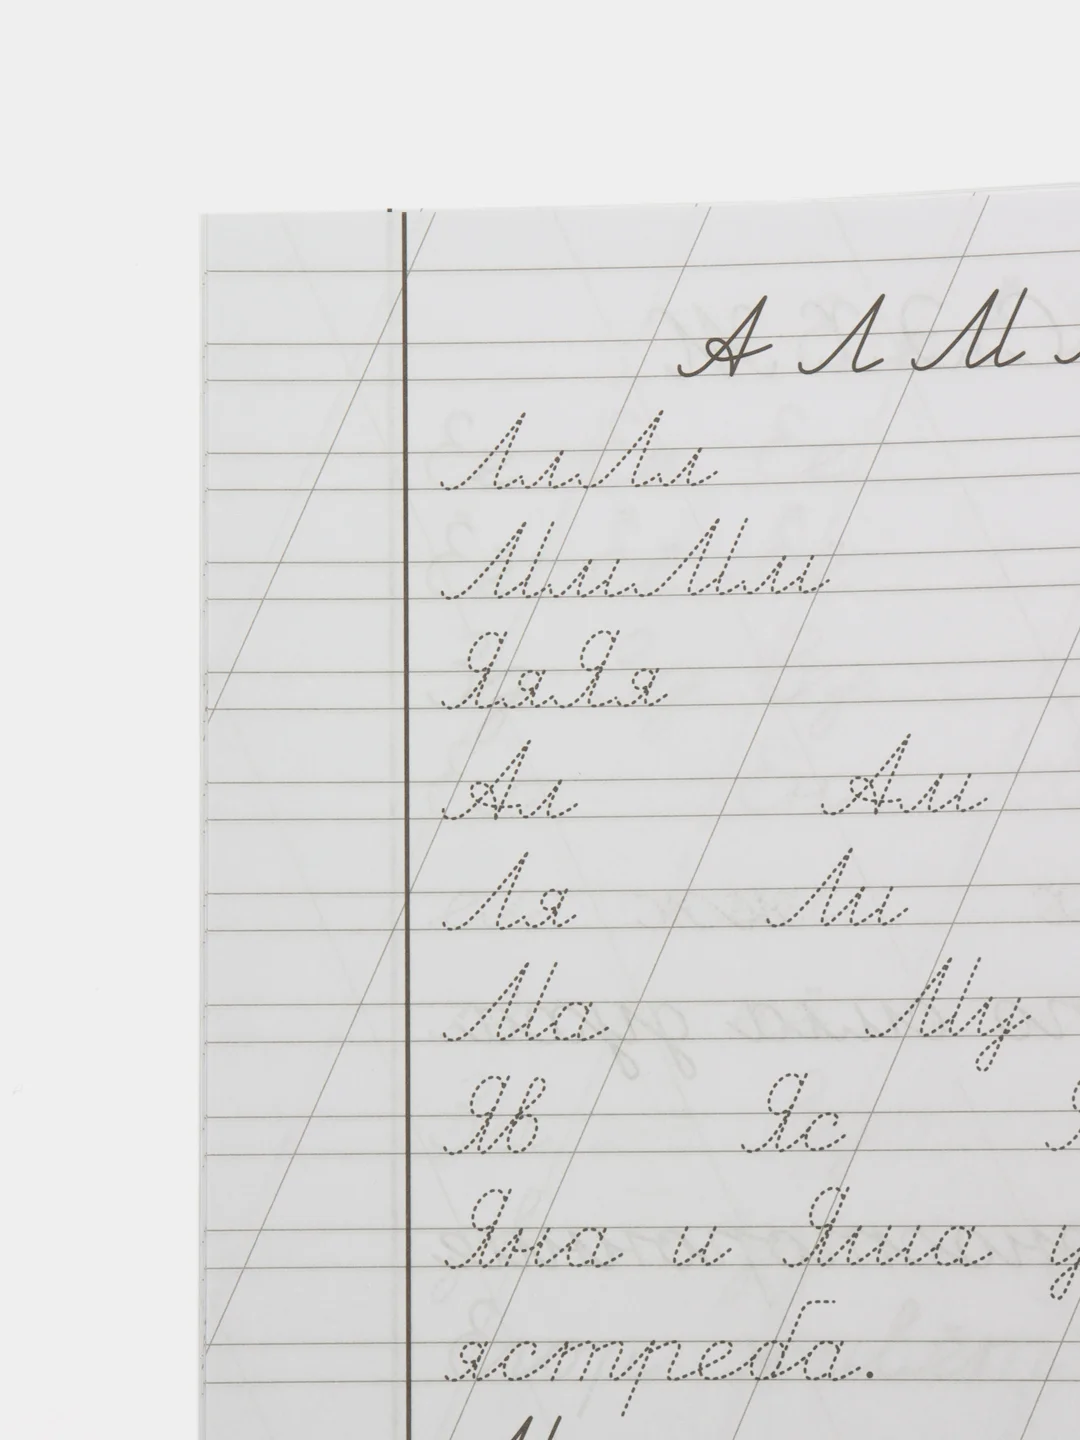 А Л М
ЛлЛл
МмМм
ЯяЯя
Ал Ам
Ля Ли
Ма Му
Яв Яс
Яна и Яша
ястреба.